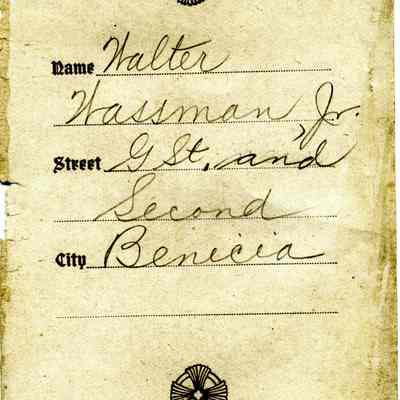 Name Walter
Wassman, Jr.
Street G St. and
Second
City Benicia